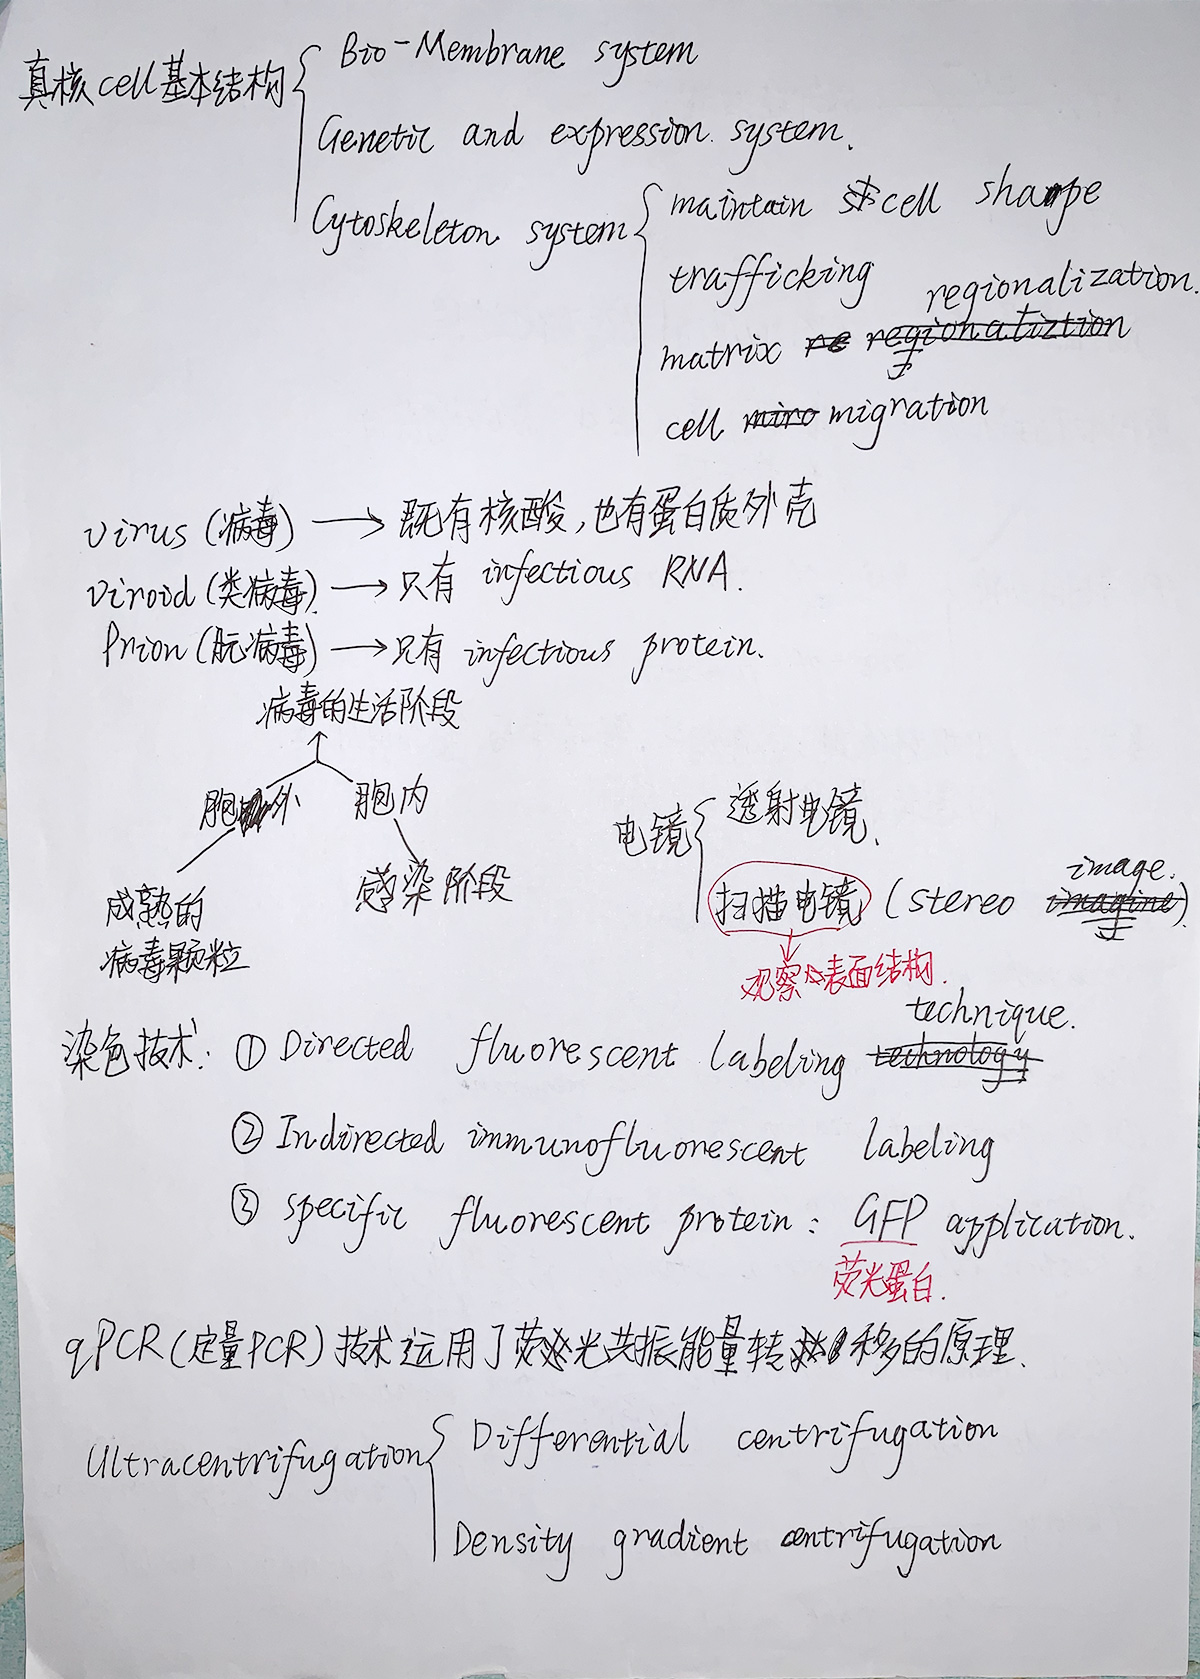 真核cell基本结构
Bio-Membrane system
Genetic and expression system.
Cytoskeleton system
maintain cell shape
trafficking
regionalization.
matrix re regionatiztion
cell miro migration
virus (病毒) → 既有核酸,也有蛋白质外壳
Viroid (类病毒) → 只有 infectious RNA.
Prion (朊病毒) → 只有 infectious protein.
病毒的生活阶段
胞外 胞内
成熟的
病毒颗粒
感染阶段
电镜
透射电镜、
image.
扫描电镜 (stereo imagine)
观察表面结构.
technique.
染色技术: ① Directed fluorescent labeling technology
② Indirected immunofluorescent labeling
③ specific fluorescent protein: GFP application.
荧光蛋白.
qPCR(定量PCR)技术运用了荧光共振能量转移的原理、
Ultracentrifugation
Differential centrifugation
Density gradient centrifugation